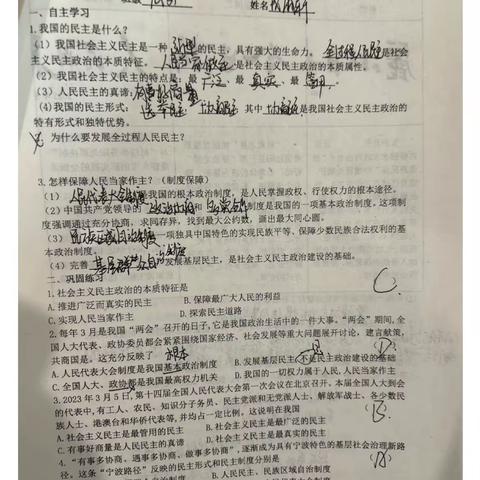 姓名
一、自主学习
1.我国的民主是什么?
(1)我国社会主义民主是一种 新型 的民主,具有强大的生命力。 是社会
主义民主政治的本质特征。 是社会主义民主政治的本质属性。
(2)我国社会主义民主的特点是:最 广泛、最 真实、最 管用。
(3)人民民主的真谛:有事好商量
(4)我国的民主形式: 选举民主 协商民主 其中 协商民主 是我国社会主义民主政治的
特有形式和独特优势。
为什么要发展全过程人民民主?
3.怎样保障人民当家作主?(制度保障)
(1) 人民代表大会制度 我国的根本政治制度,是人民掌握政权、行使权力的根本途径。
(2)中国共产党领导的 政治协商 制度是我国的一项基本政治制度。这项制
度强调通过充分协商,求同存异,找到最大公约数,画出最大同心圆。
(3) 民族区域自治制度 一项独具中国特色的实现民族平等、保障少数民族合法权利的基
本政治制度。
(4)完善 基层群众自治制度 发展基层民主,是社会主义民主政治建设的基础。
二、巩固练习
1.社会主义民主政治的本质特征是 C
A.推进广泛而真实的民主 B.保障最广大人民的利益
C.实现人民当家作主 D.探索民主道路
2.每年3月是我国“两会”召开的日子,它是我国政治生活中的一件大事。“两会”期间,全
国人大代表、政协委员都会紧紧围绕国家经济、社会发展等重大问题展开讨论,建言献策,
共商国是。这充分反映了 根本 (D)
A.人民代表大会制度是我国基本政治制度 B.发展基层民主不是民主政治建设的基础
C.全国人大、政协是我国最高权力机关 D.我国的一切权力属于人民,人民当家作主
3.2023年3月5日,第十四届全国人民代表大会第一次会议在北京召开。本届全国人大到会
的代表中,有工人、农民、知识分子务员、民主党派和无党派人士、解放军战士、各少数民
族人士、港澳台和华侨代表等,并均占一定比例。这说明在我国 (B)
A.社会主义民主是最管用的民主 B.社会主义民主是最广泛的民主
C.有事好商量是人民民主的真谛 D.社会主义民主是最真实的民主
4.“有事多协商、遇事多协商、做事多协商”,逐渐成为具有宁波特色的基层社会治理新路
径。这条“宁波路径”反映的民主形式和民主制度分别是 (A)
B.人民民主、民族区域自治制度